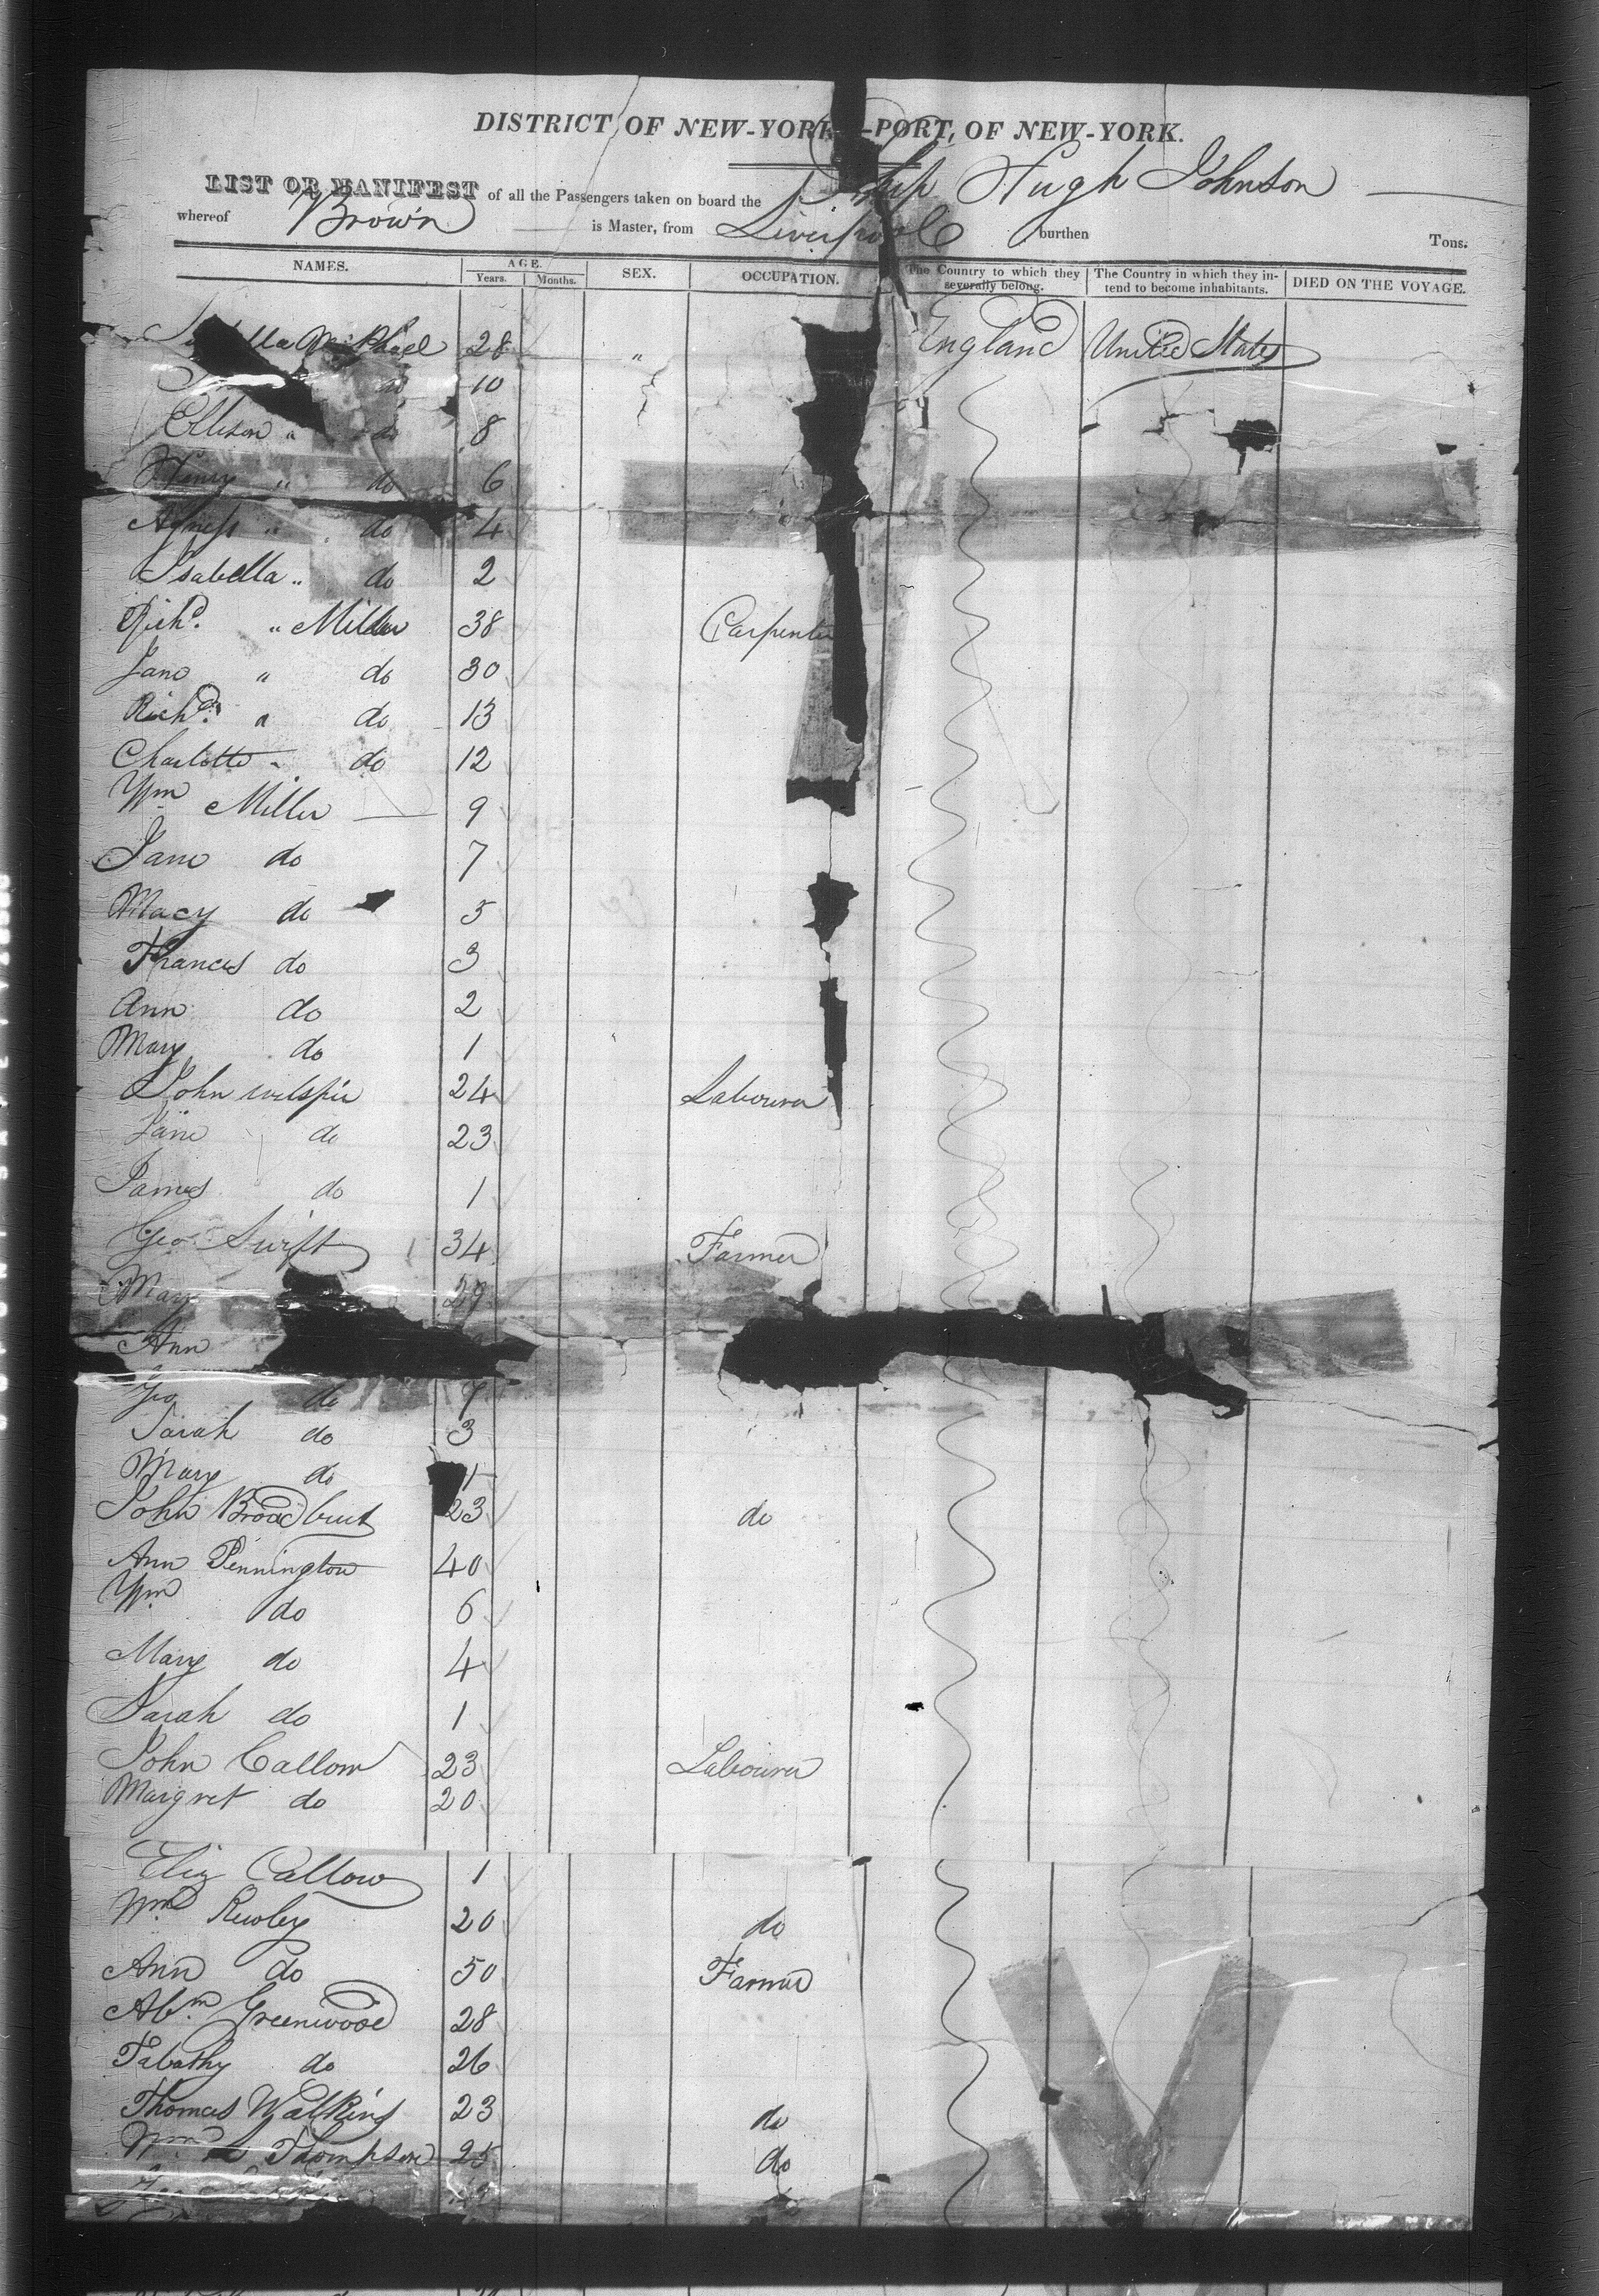 DISTRICT OF NEW-YORK—PORT, OF NEW-YORK.
LIST OR MANIFEST of all the Passengers taken on board the Ship Hugh Johnson
whereof Brown is Master, from Liverpool burthen Tons.
NAMES. AGE. Years. Months. SEX. OCCUPATION. The Country to which they severally belong. The Country in which they intend to become inhabitants. DIED ON THE VOYAGE.
28 " England United States
do 10
Ellison " do 8
Henry " do 6
Agness " do 4
Isabella " do 2
Richd. " Miller 38 Carpenter
Jane " do 30
Richd. " do 13
Charlotte " do 12
Wm Miller 9
Jane do 7
Macy do 5
Frances do 3
Ann do 2
Mary do 1
John 24 Labourer
Jane do 23
James do 1
Geo Swift 34 Farmer
Mary 29
Ann
Geo do 7
Sarah do 3
Mary do 1
John Broadbent 23 do
Ann Pennington 40
Wm do 6
Mary do 4
Sarah do 1
John Callow 23 Labourer
Margret do 20
Eliz Callow 1
Wm Kewley 20 do
Ann do 50 Farmer
Abm Greenwood 28
Tabathy do 26
Thomas Watkins 23 do
Wm Thompson 25 do